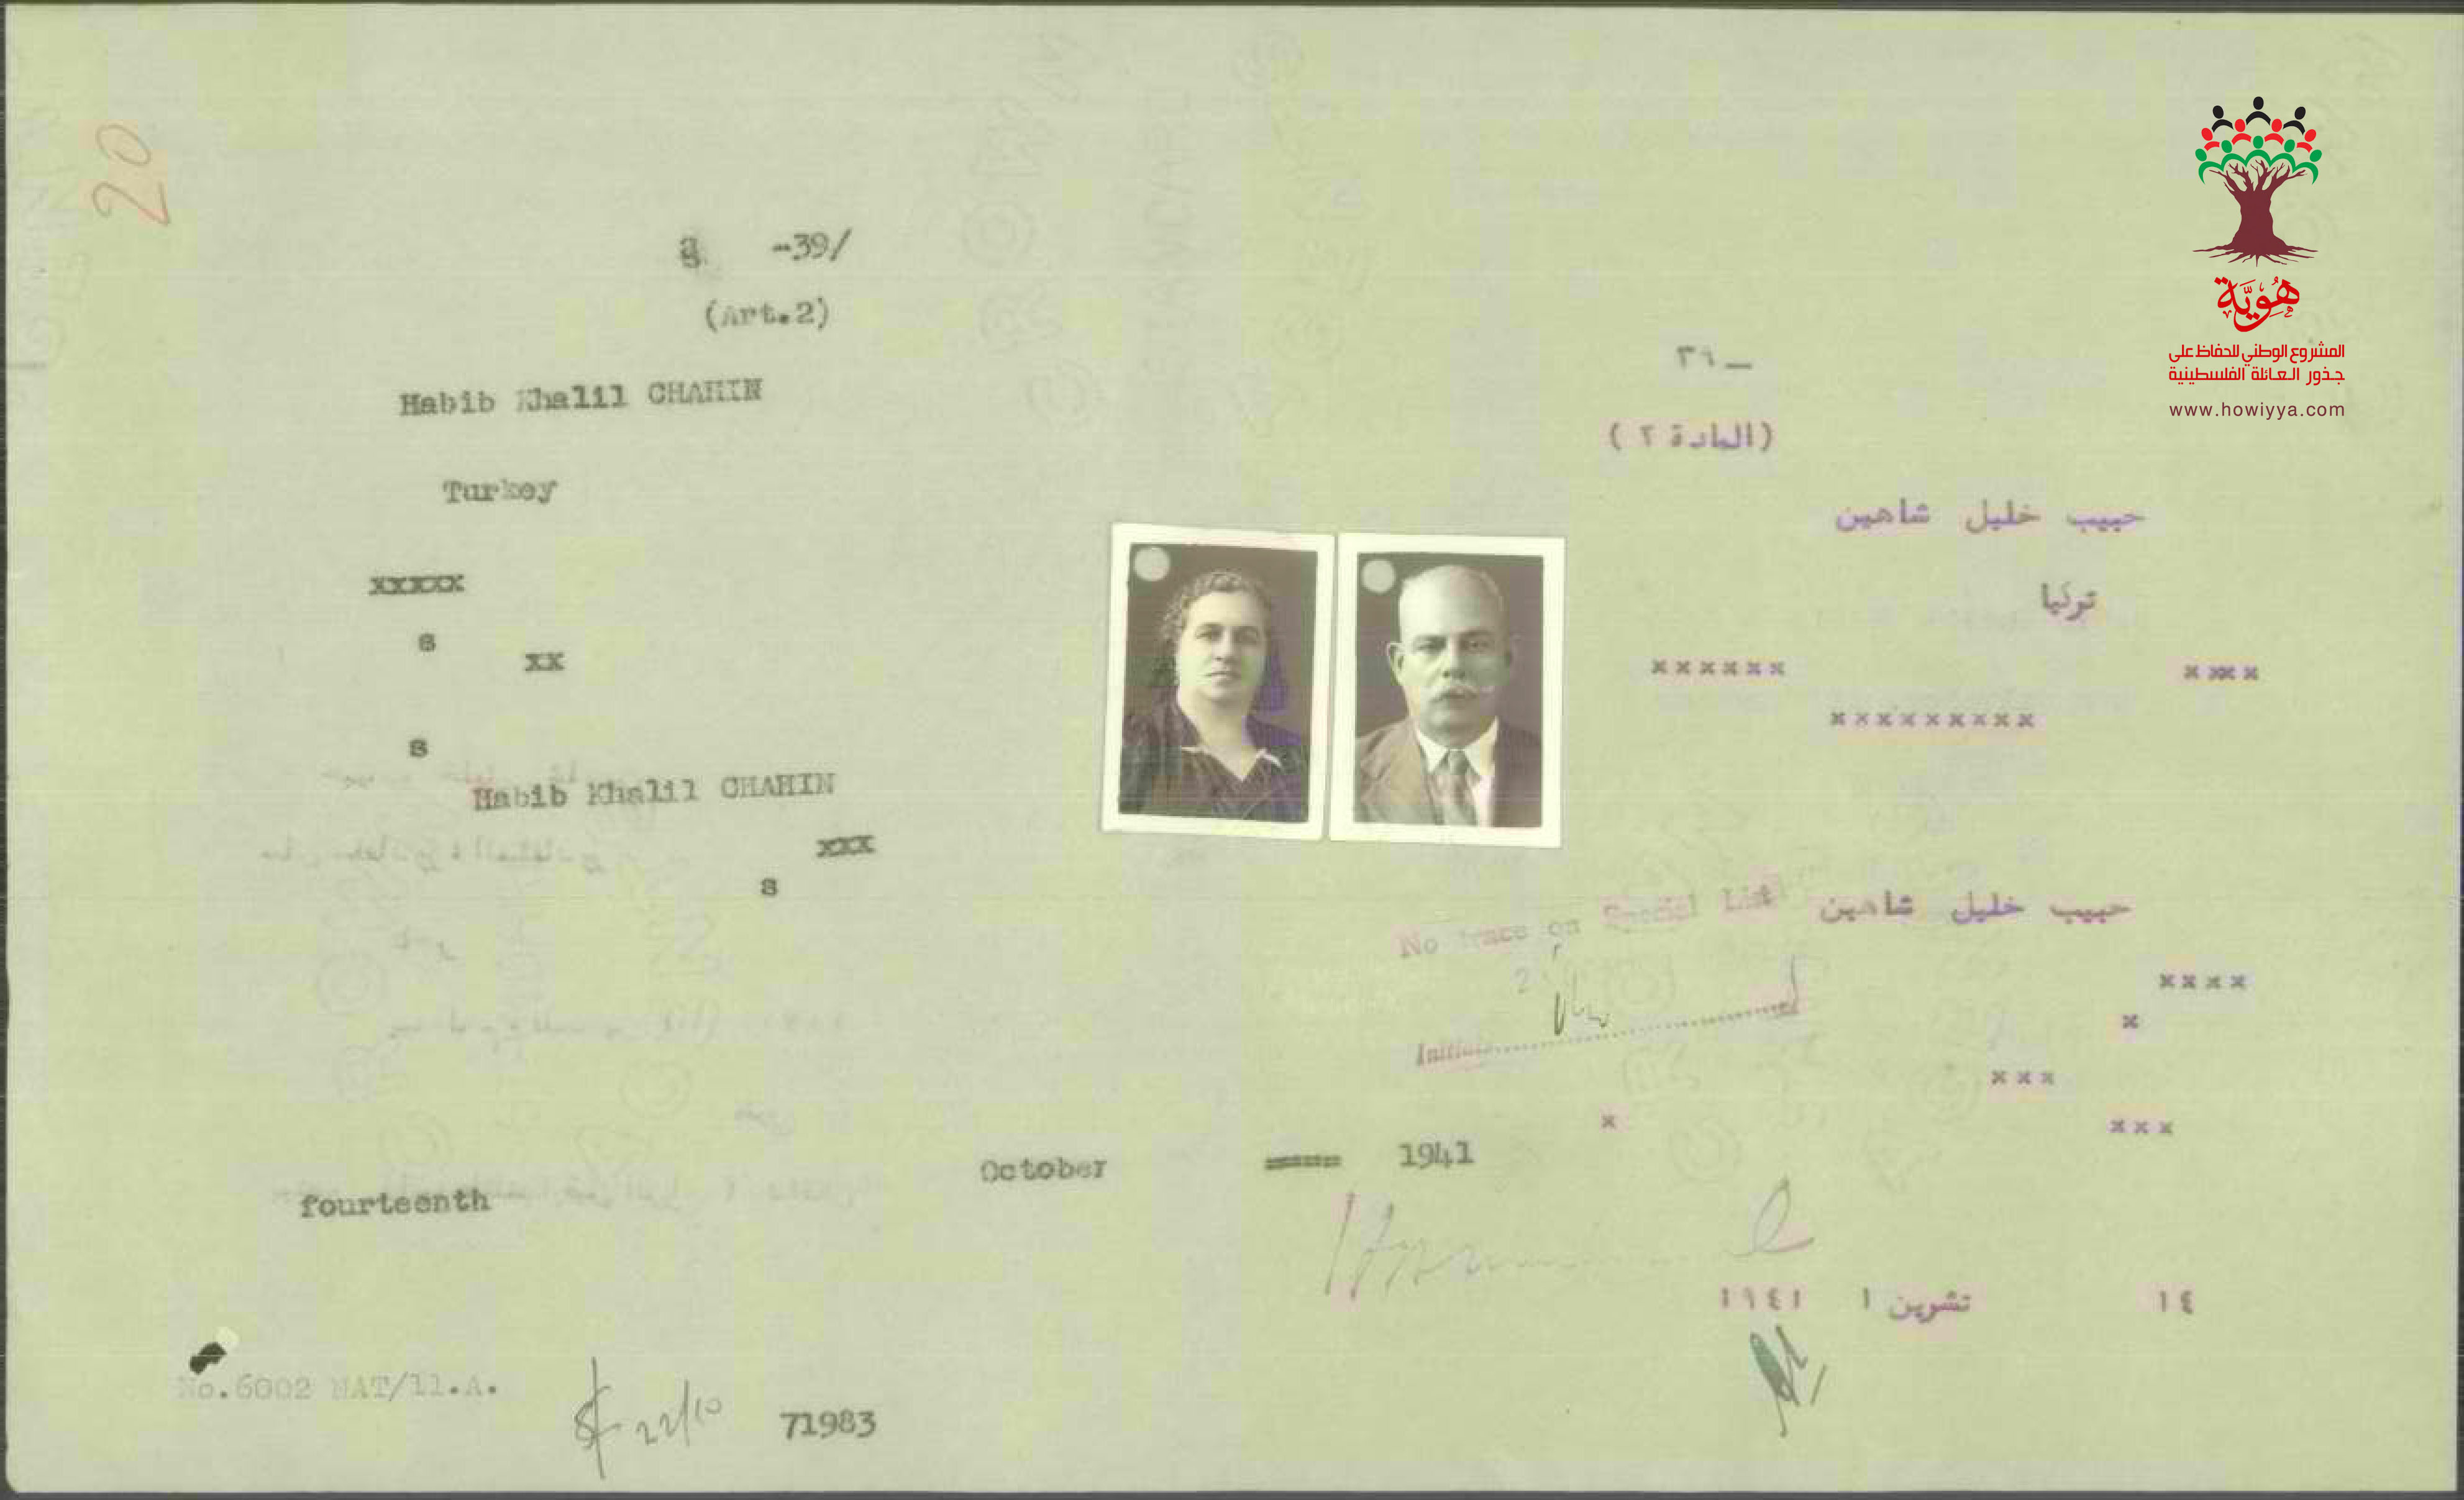 20
-39/
(Art.2)
Habib Khalil CHAHIN
Turkey
xxxxx
s
xx
s
Habib Khalil CHAHIN
xxx
s
fourteenth
October
1941
No.6002 NAT/11.A.
22/10
71983
هُويَّة
المشروع الوطني للحفاظ على
جذور العائلة الفلسطينية
www.howiyya.com
٣٩ –
(المادة ٢)
حبيب خليل شاهين
تركيا
xxxx
xxxxxx
xxxxxxxxx
No trace on Special List
حبيب خليل شاهين
xxxx
x
Initials
xxx
xxx
x
١٤ تشرين ١ ١٩٤١